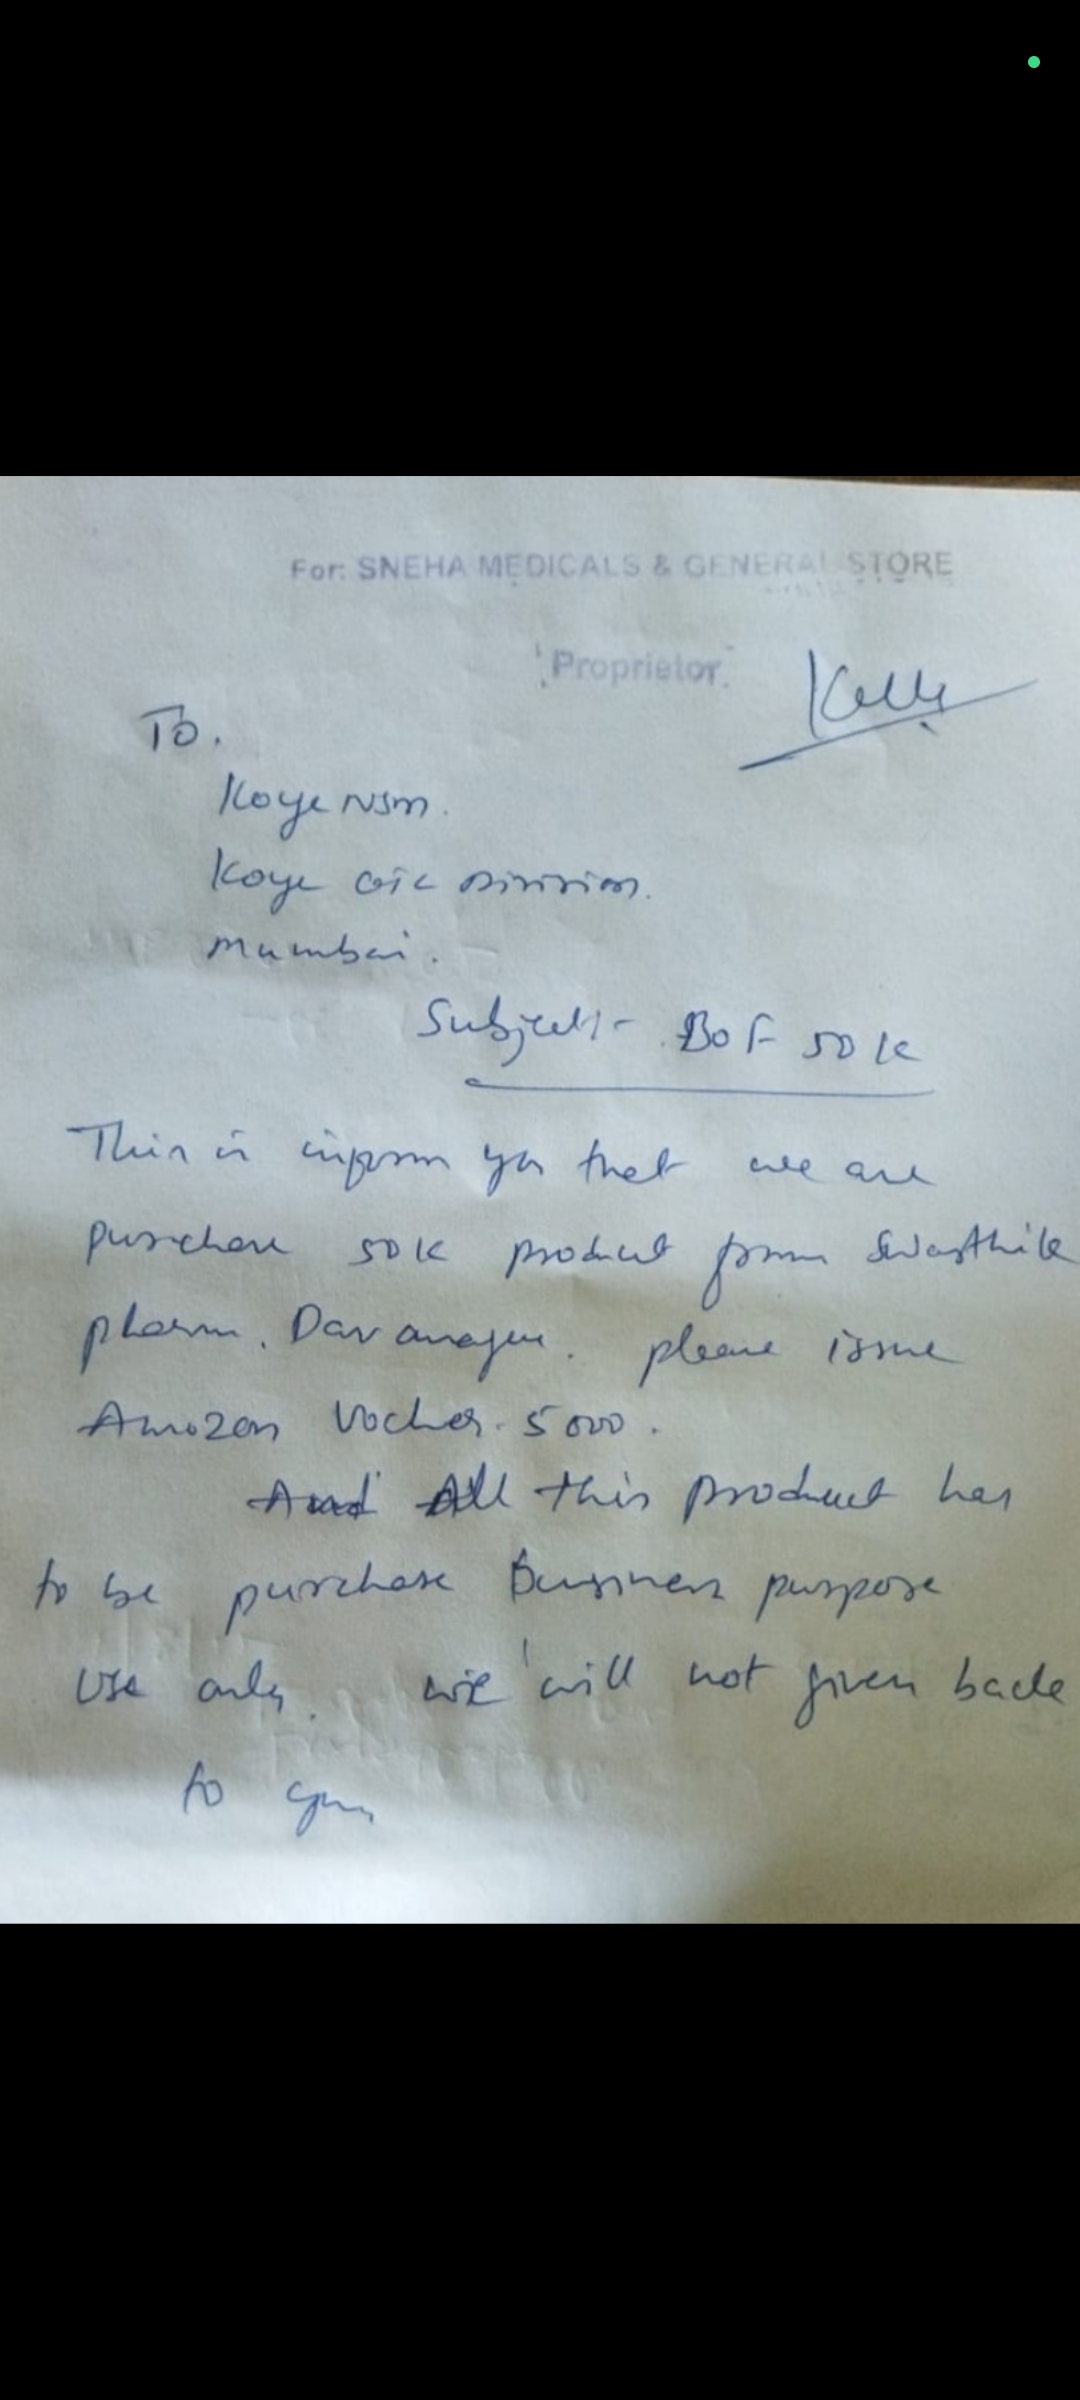 For: SNEHA MEDICALS & GENERAL STORE
Proprietor
To.
Koye NSM.
Koye Division.
Mumbai.
Subject:- BOF 50K
This is inform you that we are
purchase 50K product from Swasthik
pharm. Davanagere. please issue
Amozon Vocher. 5000.
All this product has
to be purchase business purpose
use only. we will not given back
to you